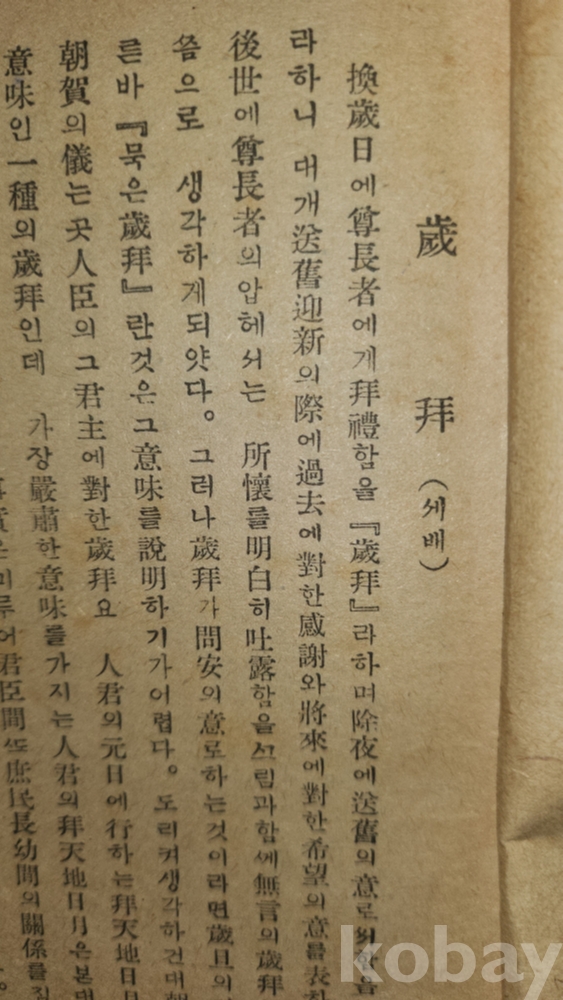 歲拜(세배)
換歲日에尊長者에게拜禮함을『歲拜』라하며除夜에送舊의意로
라하니 대개送舊迎新의際에過去에對한感謝와將來에對한希望의意를表
後世에尊長者의압헤서는 所懷를明白히吐露함을ᄭᅥ림과함ᄭᅦ無言의歲拜
쯤으로 생각하게되얏다。그러나歲拜가問安의意로하는것이라면歲旦의
른바『묵은歲拜』란것은그意味를說明하기가어렵다。도리켜생각하건대
朝賀의儀는곳人臣의그君主에對한歲拜요 人君의元日에行하는拜天地日
意味인一種의歲拜인데 가장嚴肅한意味를가지는人君의拜天地日月은본대
君臣間ᄯᅩ庶民長幼間의關係를
kobay